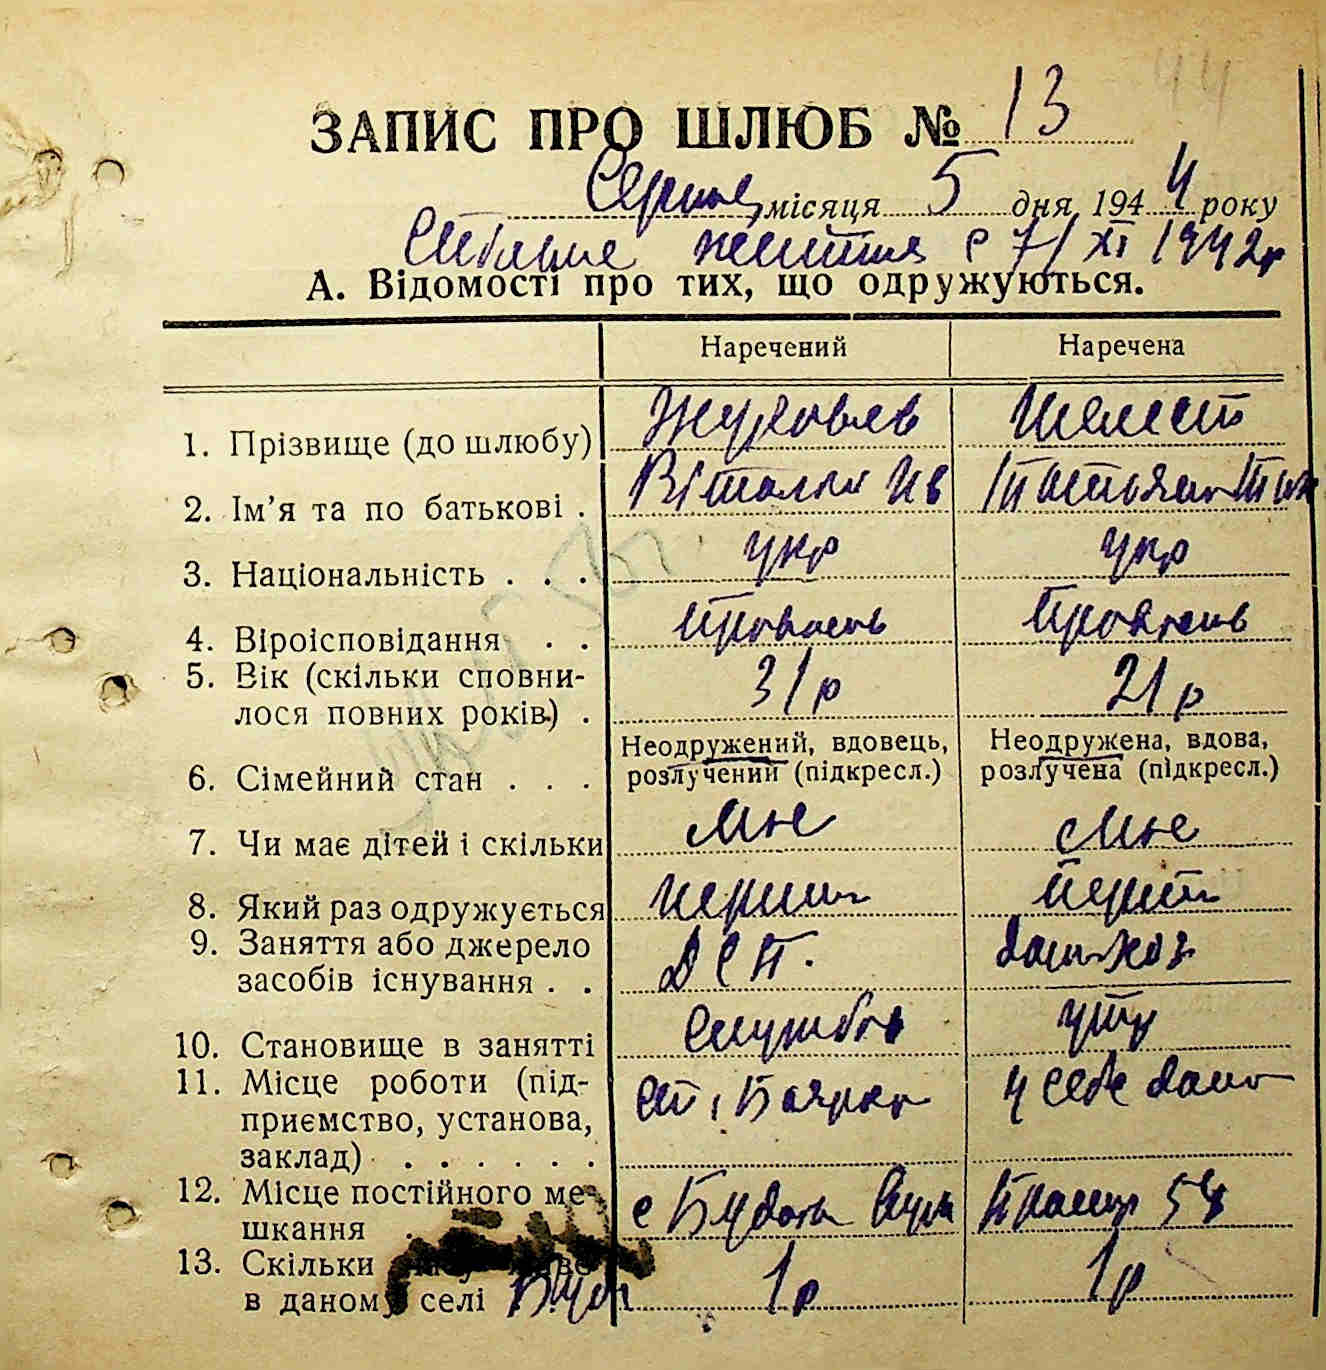 44
ЗАПИС ПРО ШЛЮБ № 13
Серпня місяця 5 дня 1944 року
життя с 7/XI 1942р
А. Відомості про тих, що одружуються.
Наречений Наречена
1. Прізвище (до шлюбу) Журовлев Шелест
2. Ім’я та по батькові . Віталий Ив
3. Національність . . . укр укр
4. Віроісповідання . . Правосл Правосл
5. Вік (скільки сповни-
лося повних років) . 31р 21р
Неодружений, вдовець, Неодружена, вдова,
6. Сімейний стан . . . розлучений (підкресл.) розлучена (підкресл.)
7. Чи має дітей і скільки
8. Який раз одружується перший перший
9. Заняття або джерело
засобів існування . . домхоз
10. Становище в занятті Службов утр
11. Місце роботи (під-
приємство, установа, ст. Боярка у себе дома
заклад) . . . . . . .
12. Місце постійного ме-
шкання . с Будаєвка вул 54
13. Скільки
в даному селі 1р 1р